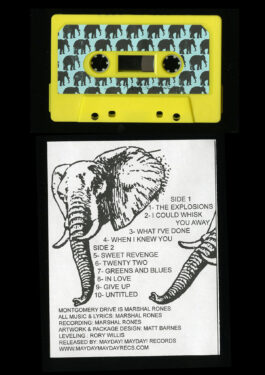 SIDE 1
1- THE EXPLOSIONS
2- I COULD WHISK
YOU AWAY
3- WHAT I'VE DONE
4- WHEN I KNEW YOU
SIDE 2
5- SWEET REVENGE
6- TWENTY TWO
7- GREENS AND BLUES
8- IN LOVE
9- GIVE UP
10- UNTITLED
MONTGOMERY DRIVE IS MARSHAL RONES
ALL MUSIC & LYRICS: MARSHAL RONES
RECORDING: MARSHAL RONES
ARTWORK & PACKAGE DESIGN: MATT BARNES
LEVELING : RORY WILLIS
RELEASED BY: MAYDAY! MAYDAY! RECORDS
WWW.MAYDAYMAYDAYRECS.COM